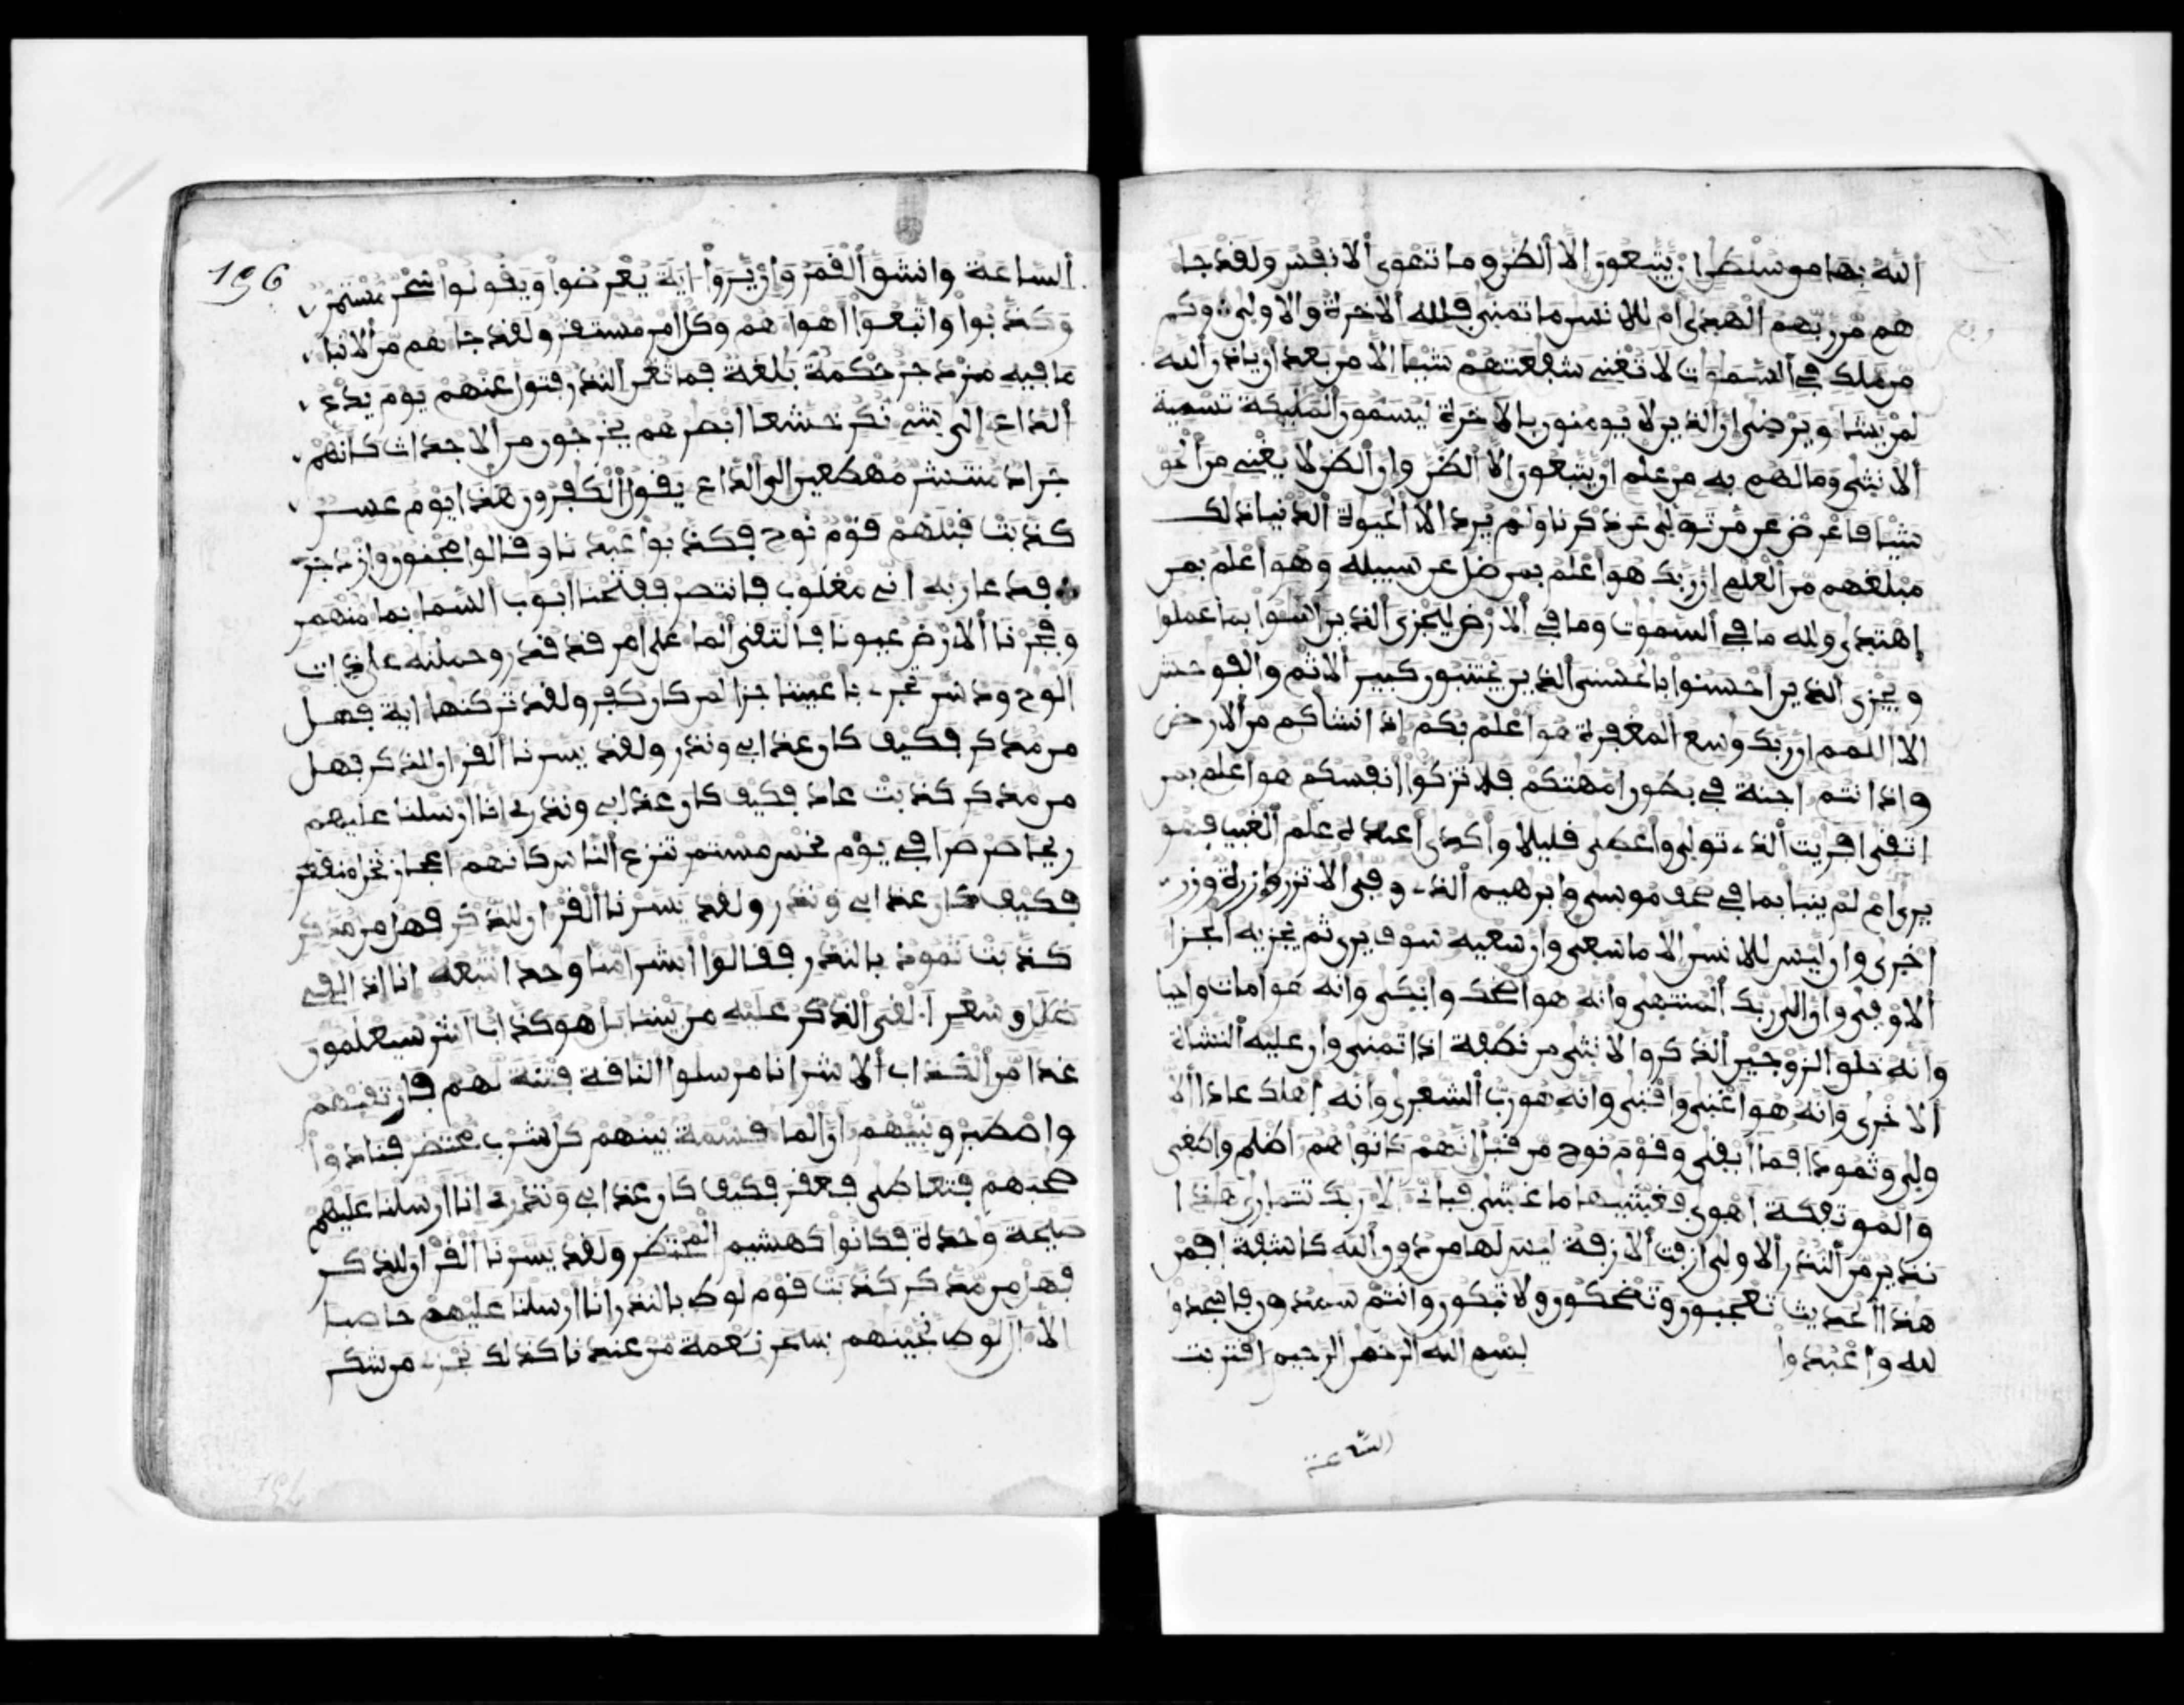 الله بها من سلطن ان يتبعون الا الظن وما تهوى الانفس ولقد جا
هم من ربهم الهدى ام للانسن ما تمنى فلله الاخرة والاولى وكم
من ملك في السموت لا تغنى شفعتهم شيا الا من بعد ان ياذن الله
لمن يشا ويرضى ان الذين لا يومنون بالاخرة ليسمون المليكة تسمية
الانثى وما لهم به من علم ان يتبعون الا الظن وان الظن لا يغنى من الحق
شيا فاعرض عن من تولى عن ذكرنا ولم يرد الا الحيوة الدنيا ذلك
مبلغهم من العلم ان ربك هو اعلم بمن ضل عن سبيله وهو اعلم بمن
اهتدى ولله ما في السموت وما في الارض ليجزى الذين اسوا بما عملوا
ويجزى الذين احسنوا بالحسنى الذين يجتنبون كبير الاثم والفوحش
الا اللمم ان ربك وسع المغفرة هو اعلم بكم اذ انشاكم من الارض
واذ انتم اجنة في بطون امهتكم فلا تزكوا انفسكم هو اعلم بمن
اتقى افريت الذ تولى واعطى قليلا واكدى اعنده علم الغيب فهو
يرى ام لم ينبا بما في صحف موسى وابرهيم الذ وفى الا تزر وازرة وزر
اخرى وان ليس للانسن الا ما سعى وان سعيه سوف يرى ثم يجزيه الجزا
الاوفى وان الى ربك المنتهى وانه هو اضحك وابكى وانه هو امات واحيا
وانه خلق الزوجين الذكر والانثى من نطفة اذا تمنى وان عليه النشاة
الاخرى وانه هو اغنى واقنى وانه هو رب الشعرى وانه اهلك عادا الا
ولى وثمودا فما ابقى وقوم نوح من قبل انهم كانوا هم اظلم واطغى
والموتفكة اهوى فغشيها ما غشى فباى الا ربك تتمارى هذا
نذير من النذر الاولى ازفت الازفة ليس لها من دون الله كاشفة افمن
هذا الحديث تعجبون وتضحكون ولا تبكون وانتم سمدون فاسجدوا
لله واعبدوا بسم الله الرحمن الرحيم اقتربت
الساعة
196
الساعة وانشق القمر وان يروا اية يعرضوا ويقولوا سحر مستمر
وكذبوا واتبعوا اهواهم وكل امر مستقر ولقد جاهم من الانبا
ما فيه مزدجر حكمة بلغة فما تغن النذر فتول عنهم يوم يدع
الداع الى شى نكر خشعا ابصرهم يخرجون من الاجداث كانهم
جراد منتشر مهطعين الى الداع يقول الكفرون هذا يوم عسر
كذبت قبلهم قوم نوح فكذبوا عبدنا وقالوا مجنون وازدجر
فدعا ربه انى مغلوب فانتصر ففتحنا ابوب السما بما منهمر
وفجرنا الارض عيونا فالتقى الما على امر قد قدر وحملنه على ذات
الوح ودسر تجر باعيننا جزا لمن كان كفر ولقد تركنها اية فهل
من مدكر فكيف كان عذابى ونذر ولقد يسرنا القران للذكر فهل
من مدكر كذبت عاد فكيف كان عذابى ونذر انا ارسلنا عليهم
ريحا صرصرا في يوم نحس مستمر تنزع الناس كانهم اعجاز نخل منقعر
فكيف كان عذابى ونذر ولقد يسرنا القران للذكر فهل من مدكر
كذبت ثمود بالنذر فقالوا ابشرا منا وحدا نتبعه انا اذا لفى
ضلل وسعر القى الذكر عليه من بيننا بل هو كذاب اشر سيعلمون
غدا من الكذاب الاشر انا مرسلوا الناقة فتنة لهم فارتقبهم
واصطبر ونبيهم ان الما قسمة بينهم كل شرب محتضر فنادوا
صحبهم فتعاطى فعقر فكيف كان عذابى ونذر انا ارسلنا عليهم
صيحة وحدة فكانوا كهشيم المحتظر ولقد يسرنا القران للذكر
فهل من مدكر كذبت قوم لوط بالنذر انا ارسلنا عليهم حاصبا
الا ال لوط نجينهم بسحر نعمة من عندنا كذلك نجز من شكر